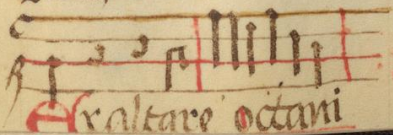 Exaltare octaui